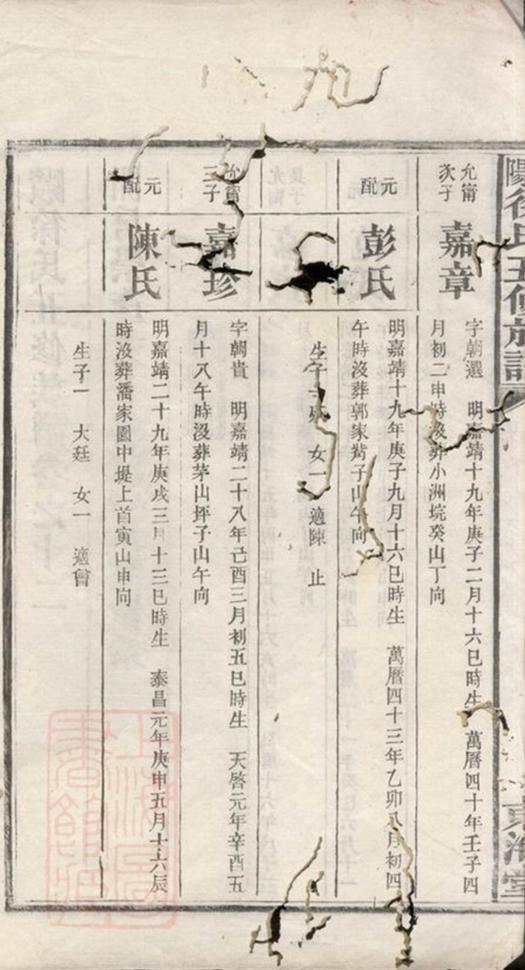 陽徐氏五修族譜
東海堂
允甯
次子
嘉章
字朝選 明嘉靖十九年庚子二月十六巳時生 萬曆四十年壬子四
月初二申時沒葬小洲垸癸山丁向
元
配
彭氏
明嘉靖十九年庚子九月十六巳時生 萬曆四十三年乙卯八月初四
午時沒葬郭家嵴子山午向
生子 殀 女一 適陳 止
允甯
三子
嘉珍
字朝貴 明嘉靖二十八年己酉三月初五巳時生 天啓元年辛酉五
月十八午時沒葬茅山坪子山午向
元
配
陳氏
明嘉靖二十九年庚戌三月十三巳時生 泰昌元年庚申五月十六辰
時沒葬潘家圖中堤上首寅山申向
生子一 大廷 女一 適曾